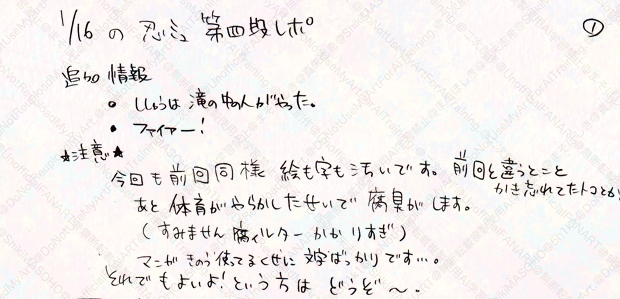 1/16 の 忍ミュ 第四段レポ ①
追加 情報
• しょうは 滝の中の人がやった。
• ファイアー!
★注意★
今回も前回同様 絵も字も汚いです。前回と違うとこと
かき忘れてたトコとか
あと 体育がやらかしたせいで 腐臭がします。
(すみません 腐ィルター かかりすぎ)
マンガ きのう使てるくせに 文字ばっかりです…。
それでもよいよ!という方は どうぞ〜。